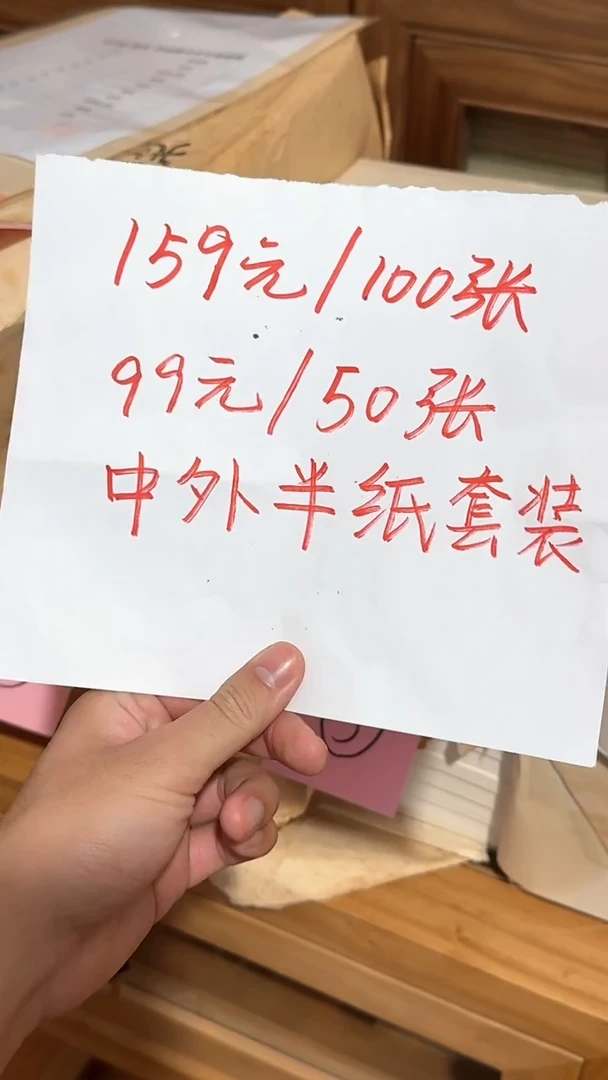 159元/100张
99元/50张
中外半纸套装